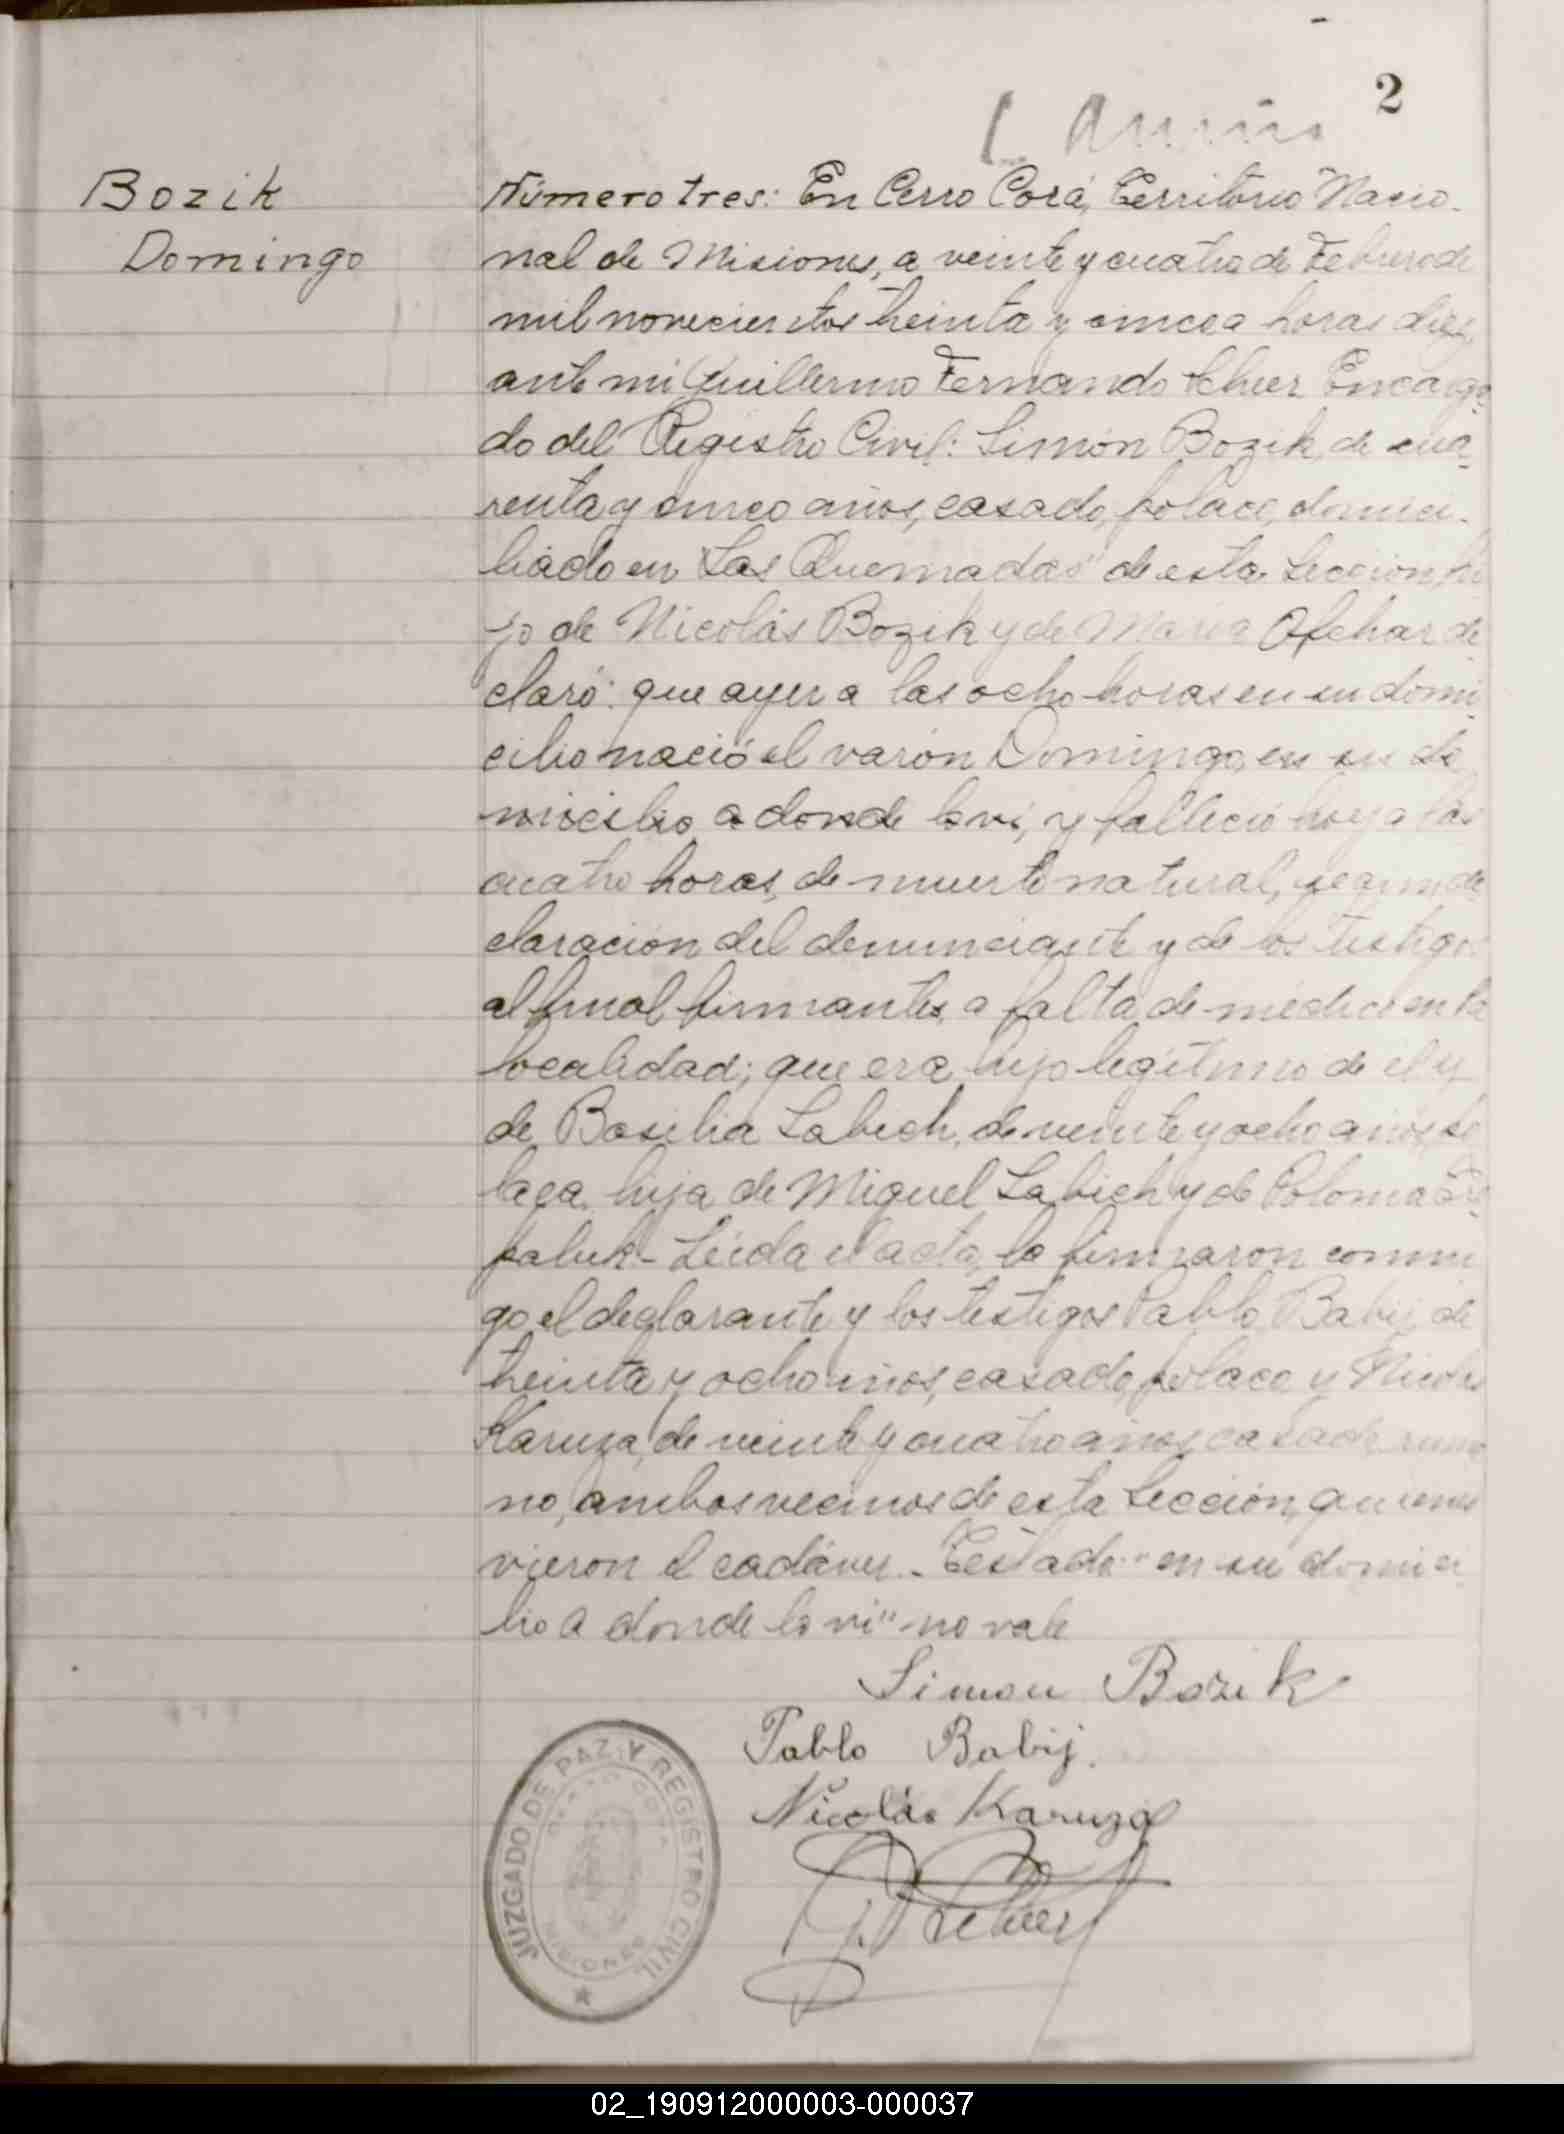 2
Bozik
Domingo
Número tres: En Cerro Corá, Territorio Nacio-
nal de Misiones, a veinte y cuatro de Febrero de
mil novecientos treinta y cinco a horas diez,
ante mi Guillermo Fernando Scheer Encarga-
do del Registro Civil: Simón Bozik, de cua-
renta y cinco años, casado, polaco, domici-
liado en "Las Quemadas" de esta Sección, hi-
jo de Nicolás Bozik y de María de-
claró: que ayer a las ocho horas en su domi-
cilio nació el varón Domingo, en su do-
micilio a donde lo vi, y falleció hoy a las
cuatro horas, de muerte natural, según de-
claración del denunciante y de los testigos
al final firmantes, a falta de médico en la
localidad; que era hijo legítimo de él y
de Basilia Labich, de veinte y ocho años, po-
laca, hija de Miguel Labich y de Polonia
Leída el acta, la firmaron conmi-
go el declarante y los testigos Pablo Babij, de
treinta y ocho años, casado, polaco y Nicolás
Karuza, de veinte y cuatro años, casado, ruma-
no, ambos vecinos de esta Sección, quienes
vieron el cadáver.- Testado: "en su domici-
lio a donde lo vi" no vale
Simon Bozik
Pablo Babij.
Nicolás Karuza
G. Scheer
JUZGADO DE PAZ Y REGISTRO CIVIL
CERRO CORA
MISIONES
02_190912000003-000037